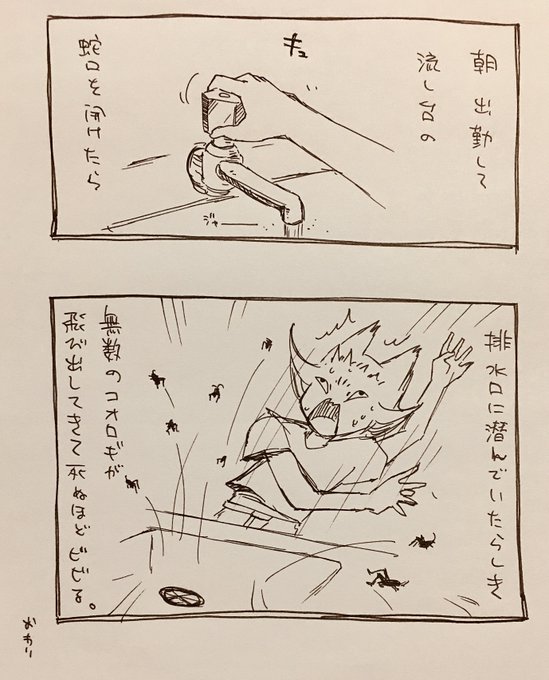 朝出勤して
流し台の
キュ
蛇口を開けたら
ジャー
排水口に潜んでいたらしき
無数のコオロギが
飛び出してきて死ぬほどビビる。
おわり